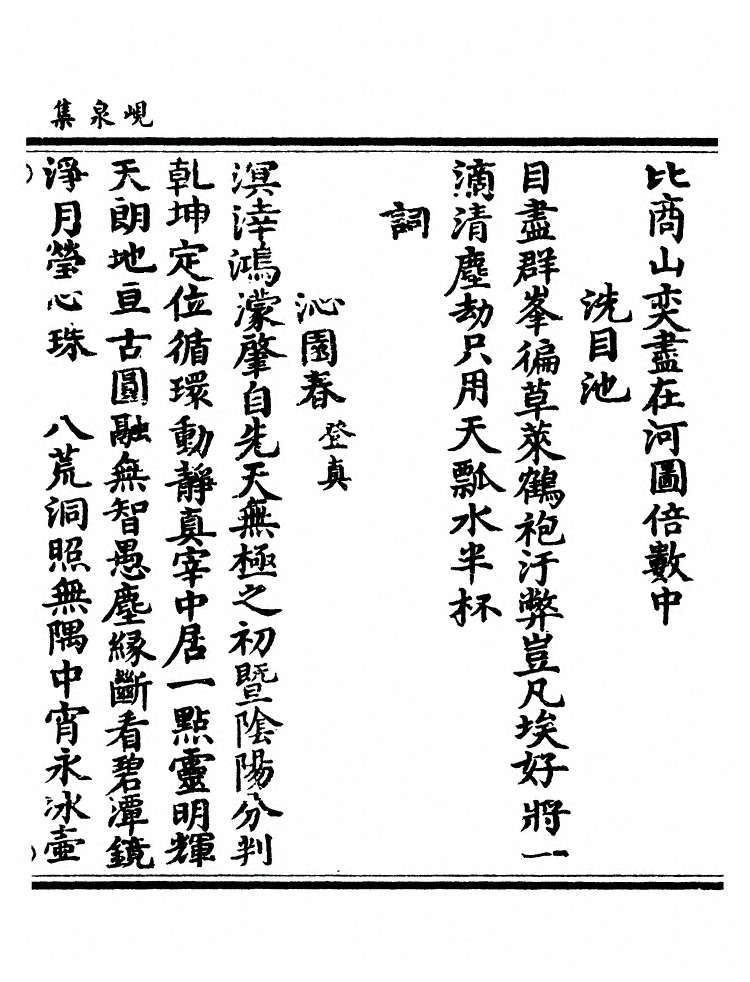 峴泉集
比商山奕盡在河圖倍數中
洗目池
目盡群峯徧草萊鶴袍汙弊豈凡埃好將一
滴清塵劫只用天瓢水半杯
詞
沁園春登真
溟涬鴻濛肇自先天無極之初暨陰陽分判
乾坤定位循環動靜真宰中居一點靈明輝
天朗地亘古圓融無智愚塵緣斷看碧潭鏡
淨月瑩心珠 八荒洞照無隅中宵永冰壺